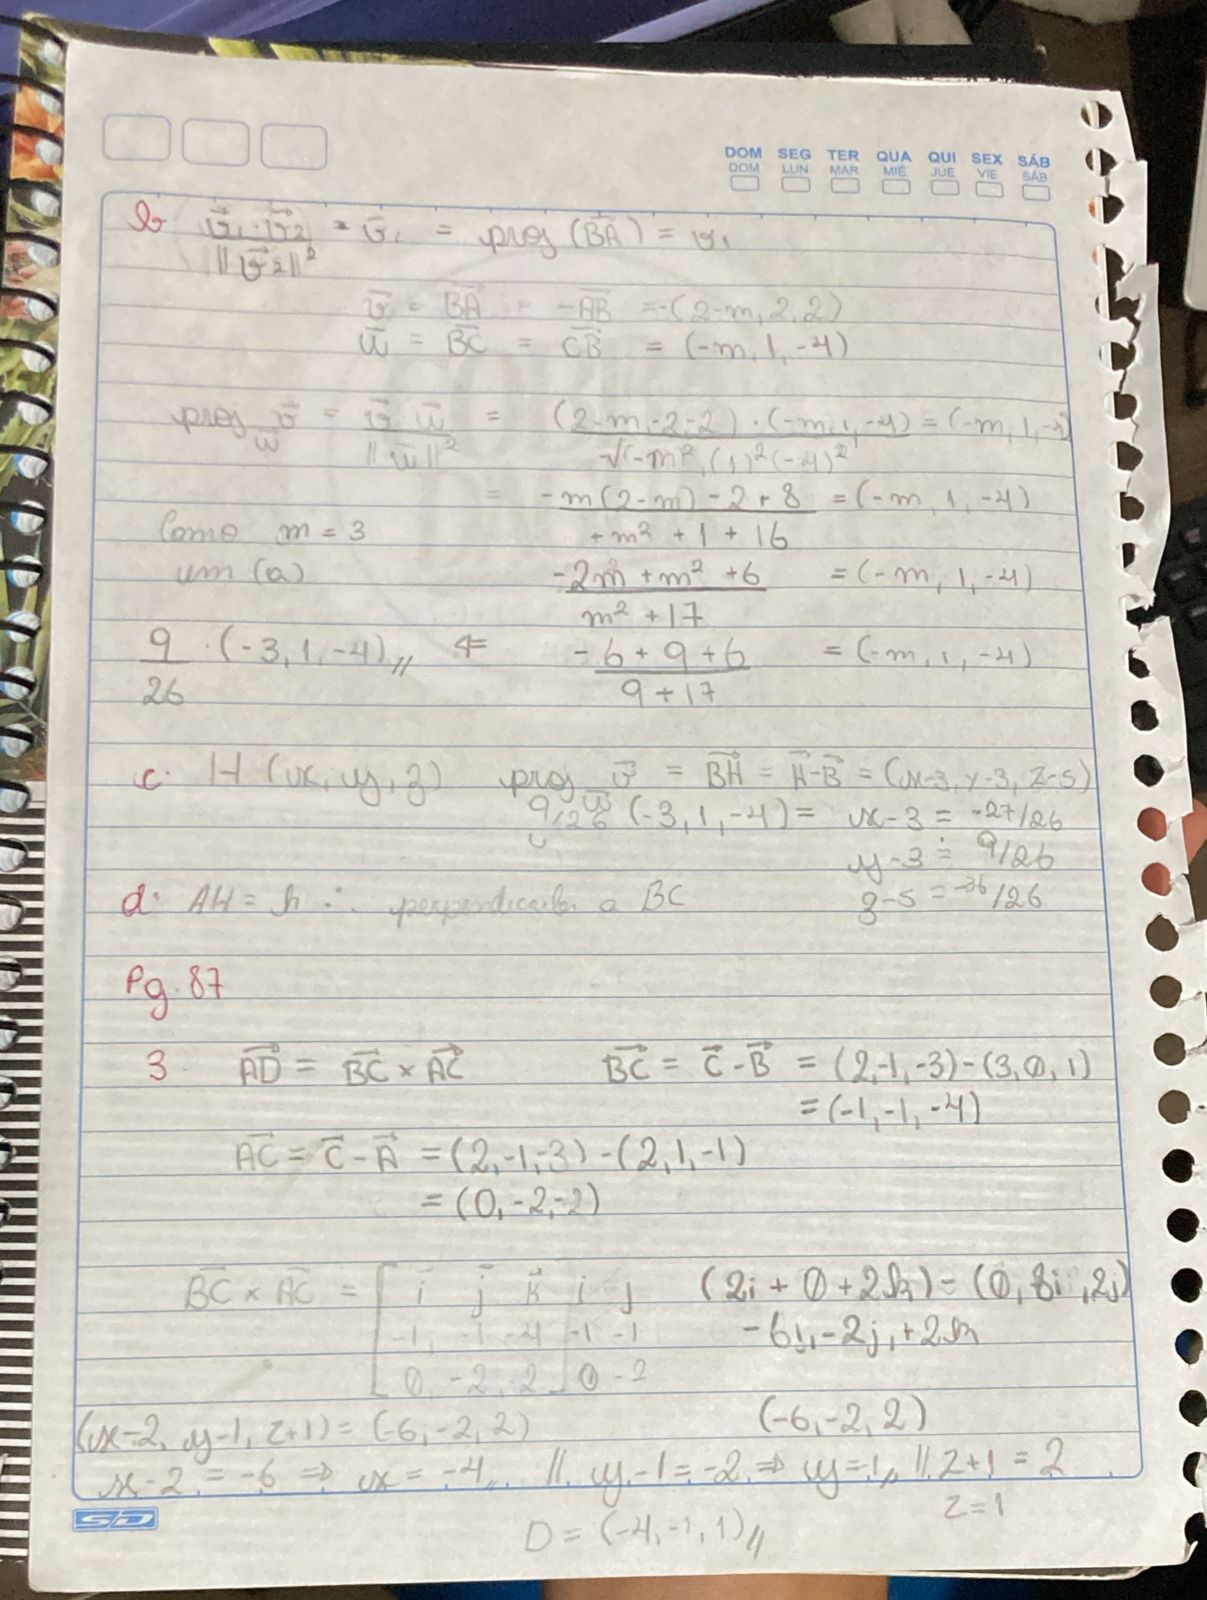 DOM SEG TER QUA QUI SEX SÁB
DOM LUN MAR MIÉ JUE VIE SÁB
b. v⃗₁·v⃗₂ / ||v⃗₂||² = v⃗₁ = proj (BA⃗) = v₁
v⃗ = BA⃗ = -AB⃗ = -(2-m, 2, 2)
w⃗ = BC⃗ = CB⃗ = (-m, 1, -4)
proj w⃗ v⃗ = v⃗ w⃗ / ||w⃗||² = (2-m, -2-2) · (-m, 1, -4) / √(-m², (1)²(-4)² = (-m, 1, -4)
= -m(2-m) - 2 + 8 / +m² + 1 + 16 = (-m, 1, -4)
Como m = 3
um (a)
-2m + m² + 6 / m² + 17 = (-m, 1, -4)
9/26 · (-3, 1, -4)// ⇐ -6 + 9 + 6 / 9 + 17 = (-m, 1, -4)
c. H (x, y, z) proj w⃗ v⃗ = BH⃗ = H⃗ - B⃗ = (x-3, y-3, z-5)
9/26 (-3, 1, -4) = x-3 = -27/26
y-3 = 9/26
z-5 = -36/26
d. AH = h ∴ perpendicular a BC
Pg. 87
3. AD⃗ = BC⃗ × AC⃗ BC⃗ = C⃗ - B⃗ = (2,-1,-3) - (3, 0, 1)
= (-1, -1, -4)
AC⃗ = C⃗ - A⃗ = (2, -1, -3) - (2, 1, -1)
= (0, -2, -2)
BC⃗ × AC⃗ = [ i j k ] i j (2i + 0 + 2k) - (0, 8i, 2j)
-1, -1 -4 -1 -1 -6i, -2j, +2k
0, -2, -2 0 -2
(-6, -2, 2)
(x-2, y-1, z+1) = (-6, -2, 2)
x-2 = -6 ⇒ x = -4,, // y-1 = -2 ⇒ y = -1,, // z+1 = 2
z = 1
SD
D = (-4, -1, 1)//